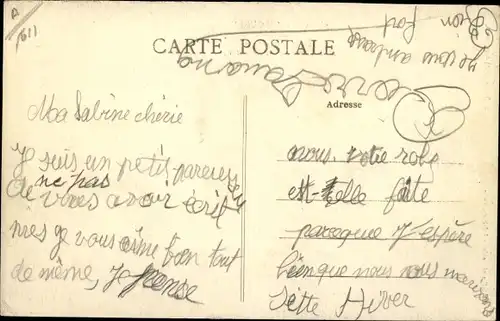 A
1611
CARTE POSTALE
Adresse
Ma Sabine chérie
Je suis un petit pareuse
de ne pas
vous avoir écrit
mes je vous aime bien tout
de même, je pense
nous votre robe
est-telle faite
parceque j'espère
bien que nous nous
sette Hiver
je vous embrasse
bien fort